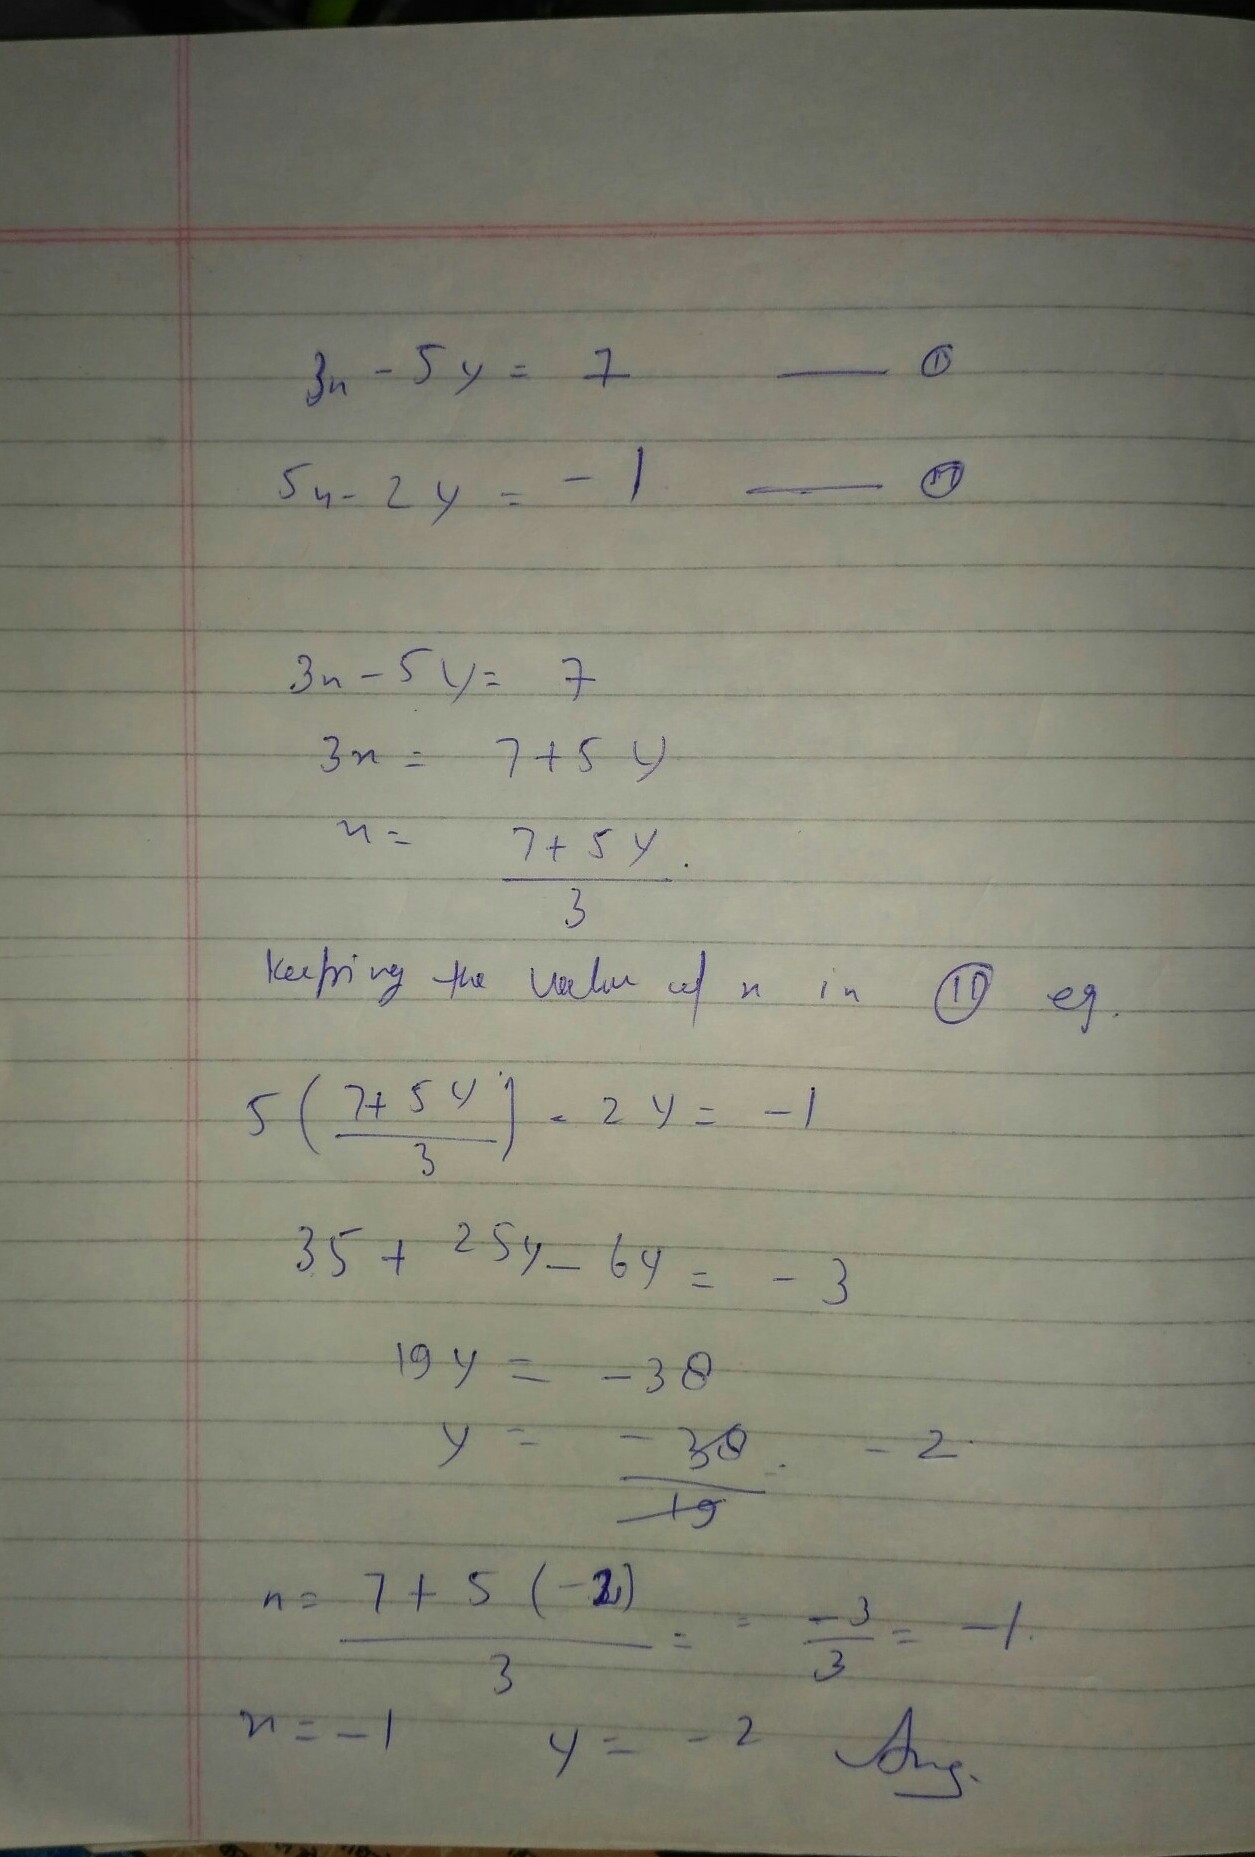 3x - 5y = 7 —— ①
5x - 2y = -1 —— ⑪
3x - 5y = 7
3x = 7 + 5y
x = 7 + 5y
3
Keeping the value of x in ⑪ eq.
5 ( 7 + 5y ) - 2y = -1
3
35 + 25y - 6y = - 3
19y = -38
y = -38 - 2
19
x = 7 + 5 (-2) = = -3 = -1
3 3
x = -1 y = - 2 Ans.